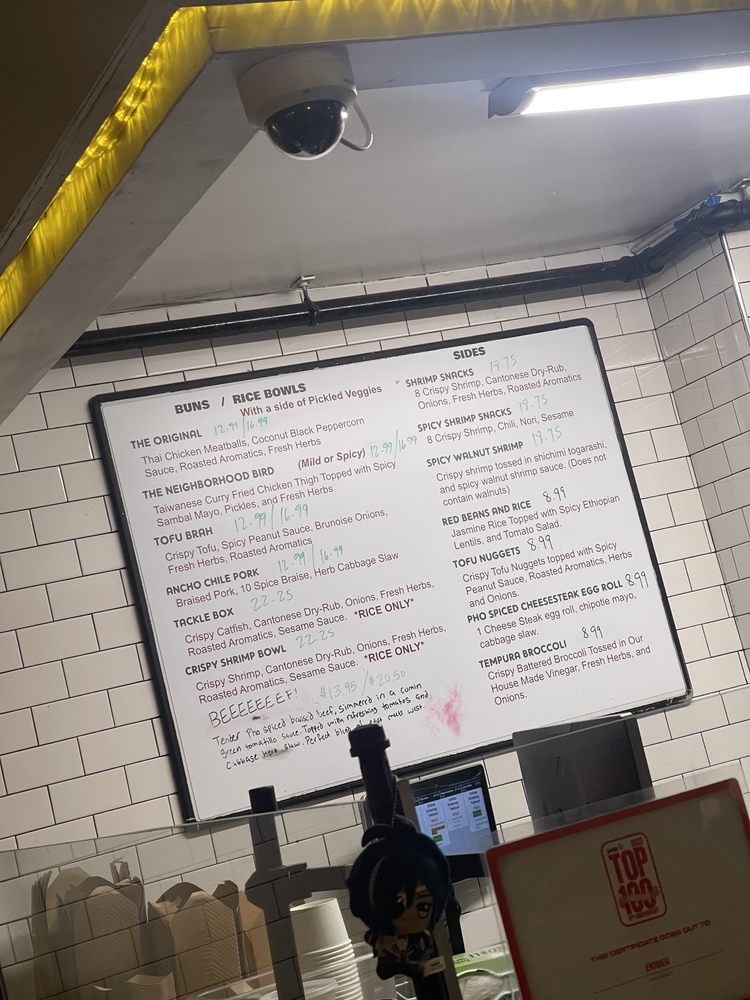 BUNS / RICE BOWLS
With a side of Pickled Veggies
THE ORIGINAL 12.99/16.99
Thai Chicken Meatballs, Coconut Black Peppercorn
Sauce, Roasted Aromatics, Fresh Herbs
THE NEIGHBORHOOD BIRD (Mild or Spicy) 12.99/16.99
Taiwanese Curry Fried Chicken Thigh Topped with Spicy
Sambal Mayo, Pickles, and Fresh Herbs
TOFU BRAH 12.99/16.99
Crispy Tofu, Spicy Peanut Sauce, Brunoise Onions,
Fresh Herbs, Roasted Aromatics
ANCHO CHILE PORK 12.99/16.99
Braised Pork, 10 Spice Braise, Herb Cabbage Slaw
TACKLE BOX 22.25
Crispy Catfish, Cantonese Dry-Rub, Onions, Fresh Herbs,
Roasted Aromatics, Sesame Sauce. *RICE ONLY*
CRISPY SHRIMP BOWL 22.25
Crispy Shrimp, Cantonese Dry-Rub, Onions, Fresh Herbs,
Roasted Aromatics, Sesame Sauce. *RICE ONLY*
BEEEEEEEF! $13.95/$20.50
Tender Pho spiced braised beef, simmered in a cumin
green tomatillo sauce. Topped with refreshing tomatos and
Cabbage slaw. Perfect east meets west.
SIDES
SHRIMP SNACKS 18.75
8 Crispy Shrimp, Cantonese Dry-Rub,
Onions, Fresh Herbs, Roasted Aromatics
SPICY SHRIMP SNACKS 18.75
8 Crispy Shrimp, Chili, Nori, Sesame
SPICY WALNUT SHRIMP 18.75
Crispy shrimp tossed in shichimi togarashi,
and spicy walnut shrimp sauce. (Does not
contain walnuts)
RED BEANS AND RICE 8.99
Jasmine Rice Topped with Spicy Ethiopian
Lentils, and Tomato Salad.
TOFU NUGGETS 8.99
Crispy Tofu Nuggets topped with Spicy
Peanut Sauce, Roasted Aromatics, Herbs
and Onions.
PHO SPICED CHEESESTEAK EGG ROLL 8.99
1 Cheese Steak egg roll, chipotle mayo,
cabbage slaw.
TEMPURA BROCCOLI 8.99
Crispy Battered Broccoli Tossed in Our
House Made Vinegar, Fresh Herbs, and
Onions.
TOP
100
THIS CERTIFICATE GOES OUT TO